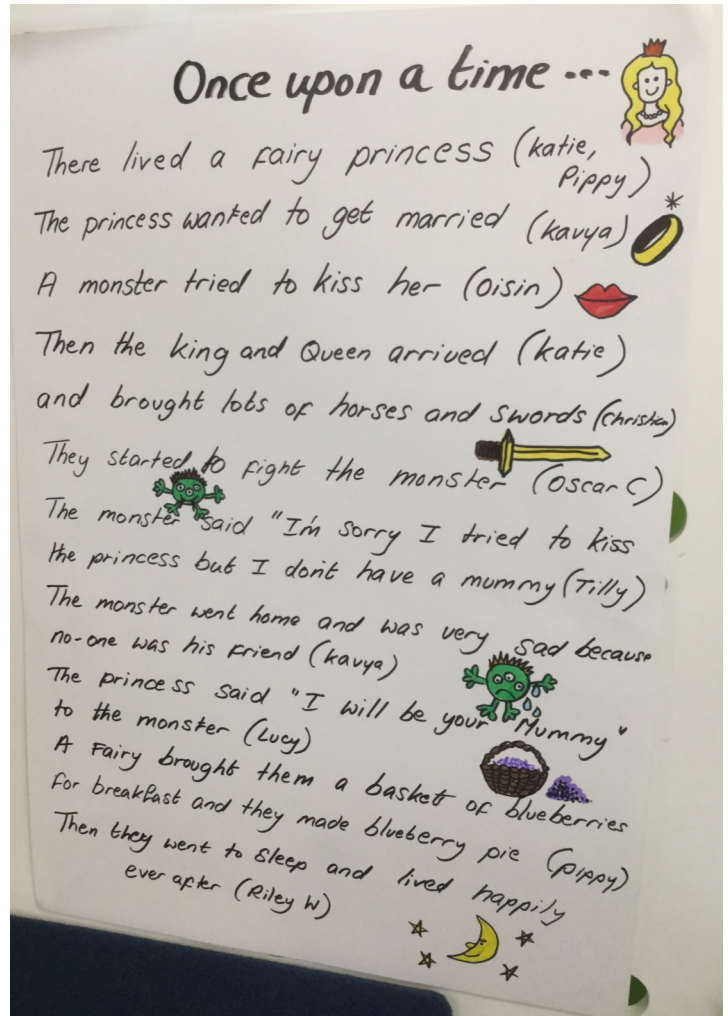 Once upon a time ...
There lived a fairy princess (katie,
Pippy)
The princess wanted to get married (kavya)
A monster tried to kiss her (Oisin)
Then the king and Queen arrived (katie)
and brought lots of horses and swords (Christian)
They started to fight the monster (Oscar C)
The monster said "I'm sorry I tried to kiss
the princess but I don't have a mummy (Tilly)
The monster went home and was very sad because
no-one was his friend (kavya)
The princess said "I will be your Mummy"
to the monster (Lucy)
A Fairy brought them a basket of blueberries
for breakfast and they made blueberry pie (pippy)
Then they went to sleep and lived happily
ever after (Riley W)